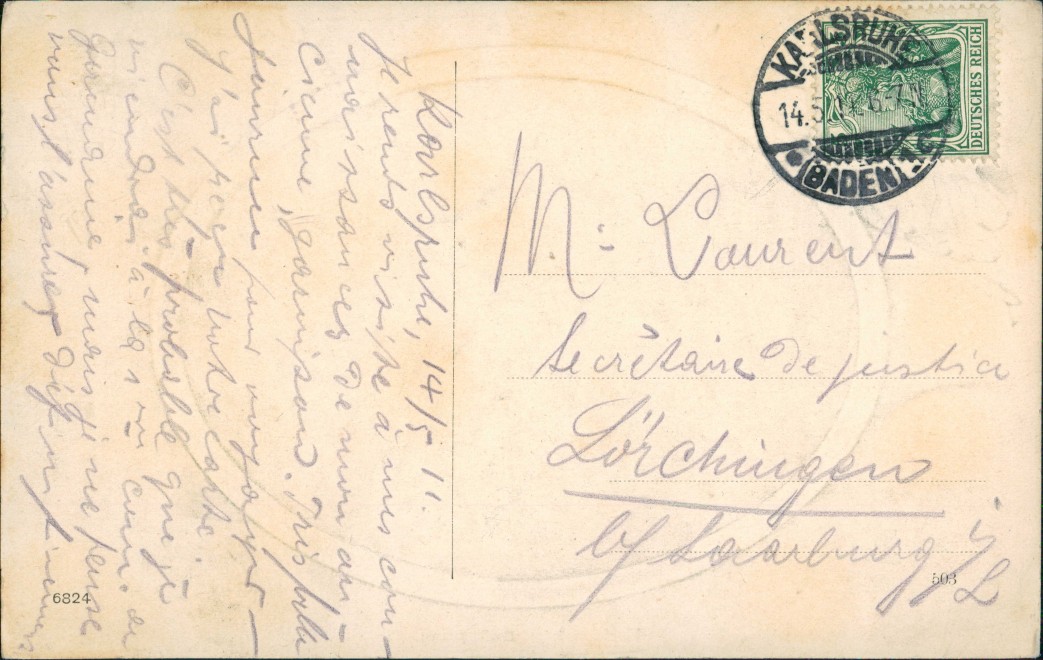 Karlsruhe, 14/5 11.
Je rends visite à mes con-
naissances de mon an-
cienne garnison. Très belle
journée pour voyager —
J'ai reçu votre carte.
C'est très probable que je
viendrai à la s
mais je ne pense
vous l'assurer
Mr Laurent
Secrétaire de justice
Lörchingen
b/ Saarburg i/L
KARLSRUHE
14.5.11. 6-7 N.
(BADEN)
DEUTSCHES REICH
6824
503